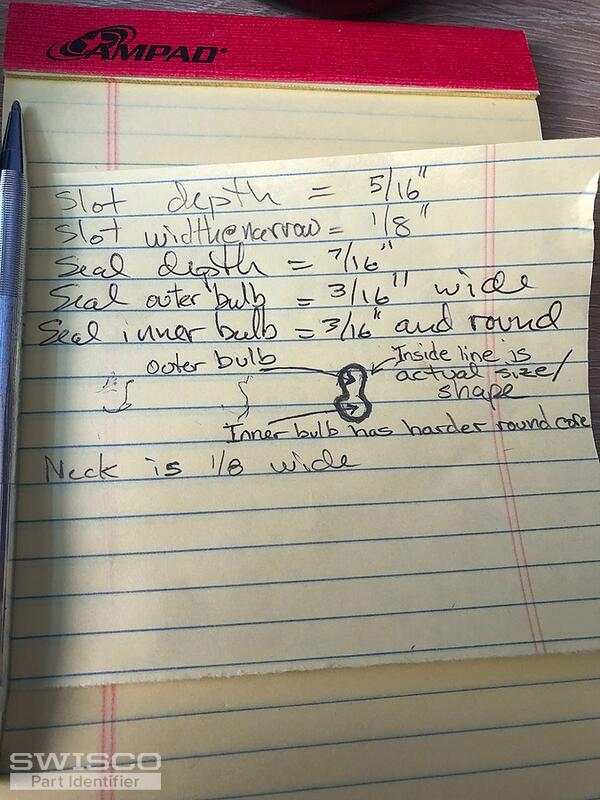 AMPAD
Slot depth = 5/16"
Slot width@narrow = 1/8"
Seal depth = 7/16"
Seal outer bulb = 3/16" wide
Seal inner bulb = 3/16" and round
outer bulb
Inside line is
actual size/
shape
Inner bulb has harder round core
Neck is 1/8 wide
SWISCO
Part Identifier